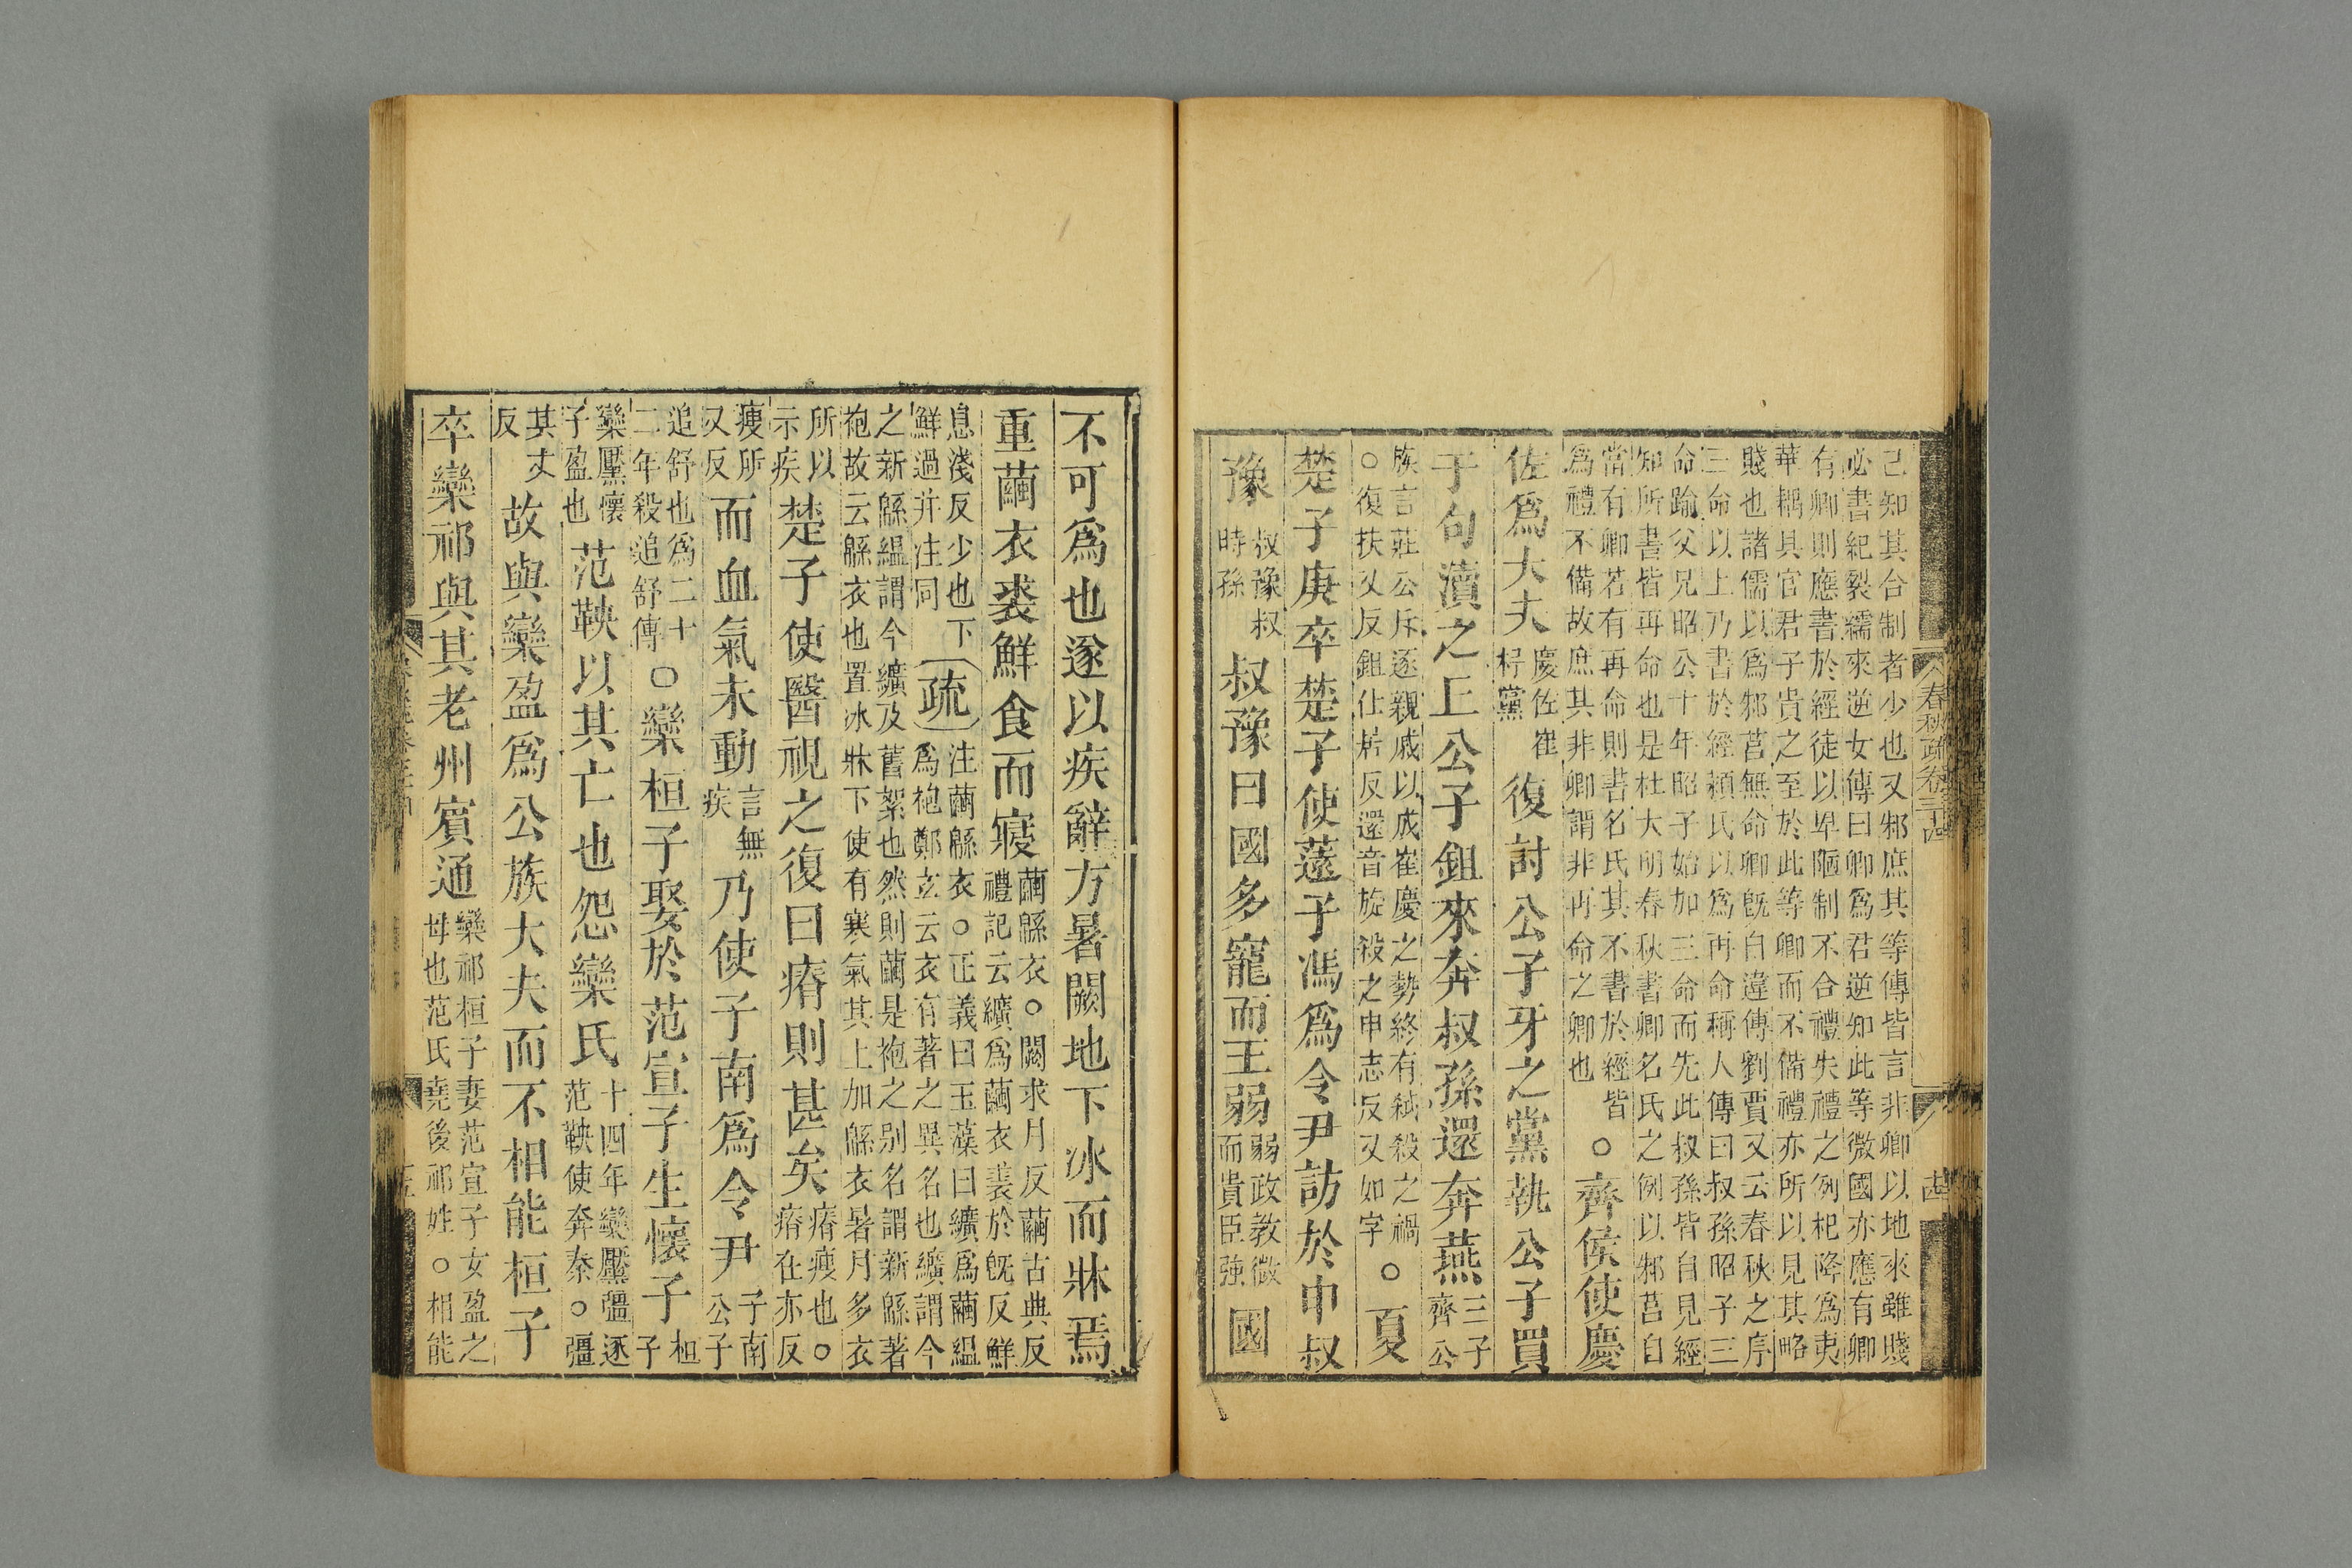 春秋疏卷三十四
十四
己知其合制者少也又邾庶其等傳皆言非卿以地來雖賤
必書紀裂繻來逆女傳曰卿爲君逆知此等微國亦應有卿
有卿則應書於經徒以卑陋制不合禮失禮之例杞降爲夷
華耦具官君子貴之至於此等卿而不備禮亦所以見其略
賤也諸儒以爲邾莒無命卿旣自違傳劉賈又云春秋之序
三命以上乃書於經頴氏以爲再命稱人傳曰叔孫昭子三
命踰父兄昭公十年昭子始加三命而先此叔孫皆自見經
知所書皆再命也是杜大明春秋書卿名氏之例以邾莒自
當有卿若有再命則書名氏其不書於經皆
爲禮不備故庶其非卿謂非再命之卿也
○齊侯使慶
佐爲大夫
慶佐崔
杼黨
復討公子牙之黨執公子買
于句瀆之丘公子鉏來奔叔孫還奔燕
三子
齊公
族言莊公斥逐親戚以成崔慶之勢終有弑殺之禍
○復扶又反鉏仕居反還音旋殺之申志反又如字
○夏
楚子庚卒楚子使薳子馮爲令尹訪於申叔
豫
叔豫叔
時孫
叔豫曰國多寵而王弱
弱政教微
而貴臣強
國
不可爲也遂以疾辭方暑闕地下冰而牀焉
重繭衣裘鮮食而寢
繭緜衣○闕求月反繭古典反
禮記云纊爲繭衣裘於旣反鮮
息淺反少也下
鮮過并注同
疏
注繭緜衣○正義曰玉藻曰纊爲繭縕
爲袍鄭玄云衣有著之異名也纊謂今
之新緜縕謂今纊及舊絮也然則繭是袍之别名謂新緜著
袍故云緜衣也置冰牀下使有寒氣其上加緜衣暑月多衣
所以
示疾
楚子使醫視之復曰瘠則甚矣
瘠瘦也○
瘠在亦反
瘦所
又反
而血氣未動
言無
疾
乃使子南爲令尹
子南
公子
追舒也爲二十
二年殺追舒傳
○欒桓子娶於范宣子生懷子
桓
子
欒黶懷
子盈也
范鞅以其亡也怨欒氏
十四年欒黶彊逐
范鞅使奔秦○彊
其丈
反
故與欒盈爲公族大夫而不相能桓子
卒欒祁與其老州賓通
欒祁桓子妻范宣子女盈之
母也范氏堯後祁姓○相能